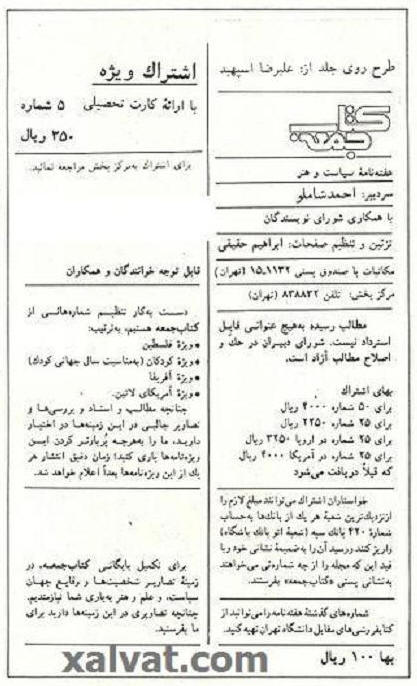 طرح روی جلد از: علیرضا اسپهبد
کتاب جمعه
هفته‌نامهٔ سیاست و هنر
سردبیر: احمد شاملو
با همکاری شورای نویسندگان
تزئین و تنظیم صفحات: ابراهیم حقیقی
مکاتبات با صندوق پستی ۱۱۳۲ـ۱۵ (تهران)
مرکز پخش: تلفن ۸۳۸۸۳۲ (تهران)
مطالب رسیده به‌هیچ عنوانی قابل
استرداد نیست. شورای دبیران در حک و
اصلاح مطالب آزاد است.
بهای اشتراک
برای ۵۰ شماره ۴۰۰۰ ریال
برای ۲۵ شماره ۲۲۵۰ ریال
برای ۲۵ شماره در اروپا ۳۲۵۰ ریال
برای ۲۵ شماره در آمریکا ۴۰۰۰ ریال
که قبلاً دریافت می‌شود
خواستاران اشتراک می‌توانند مبلغ لازم را
از نزدیک‌ترین شعبهٔ هر یک از بانک‌ها به‌حساب
شمارهٔ ۴۲۰ بانک سپه (شعبهٔ اتو بانک باشگاه)
واریز کنند و رسید آن را به‌ضمیمهٔ نشانی خود و با
قید این که مجله را از چه شماره‌ئی می‌خواهند
به‌نشانی پستی «کتاب‌جمعه» بفرستند.
شماره‌های گذشتهٔ هفته‌نامه را می‌توانید از
کتابفروشی‌های مقابل دانشگاه تهران تهیه کنید.
بها ۱۰۰ ریال
اشتراک ویژه
با ارائهٔ کارت تحصیلی ۵ شماره
۳۵۰ ریال
برای اشتراک به‌مرکز پخش مراجعه نمائید.
قابل توجه خوانندگان و همکاران
دست به‌کار تنظیم شماره‌هائی از
کتاب‌جمعه هستیم، به‌ترتیب:
• ویژهٔ فلسطین
• ویژهٔ کودکان (به‌مناسبت سال جهانی کودک)
• ویژهٔ آفریقا
• ویژهٔ آمریکای لاتین.
چنانچه مطالب و اسناد و بررسی‌ها و
تصاویر جالبی در این زمینه‌ها در اختیار
دارید، ما را به‌هرچه پُربارتر کردن این
ویژه‌نامه‌ها یاری کنید! زمان دقیق انتشار هر
یک از این ویژه‌نامه‌ها بعداً اعلام خواهد شد.
برای تکمیل بایگانی کتاب‌جمعه، در
زمینهٔ تصاویر شخصیت‌ها و وقایع جهان
سیاست، و علم و هنر به‌یاری شما نیازمندیم.
چنانچه تصاویری در این زمینه‌ها دارید برای
ما بفرستید.
xalvat.com